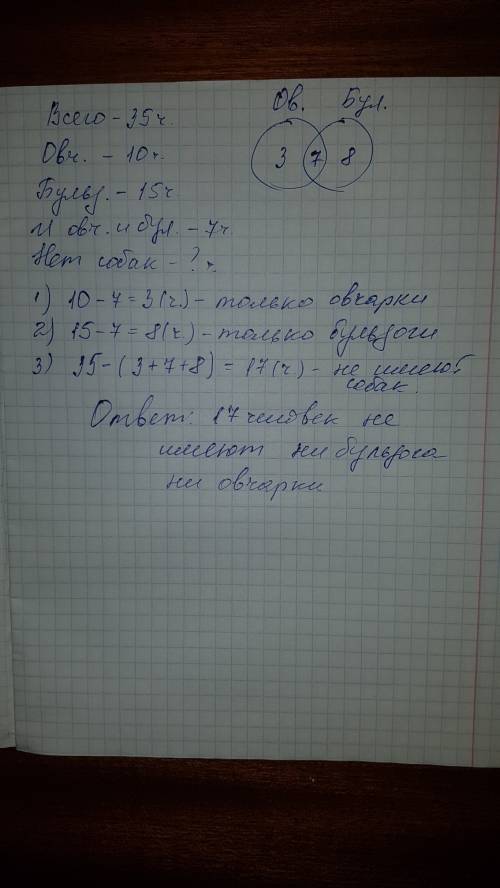 Ов. Бул.
3 7 8
Всего - 35ч.
Овч. - 10ч.
Бульд. - 15ч
И овч. и бул. - 7ч.
Нет собак - ? ч.
1) 10-7=3(ч) - только овчарки
2) 15-7=8(ч) - только бульдоги
3) 35-(3+7+8)=17(ч) - не имеют
собак.
Ответ: 17 человек не
имеют ни бульдога
ни овчарки